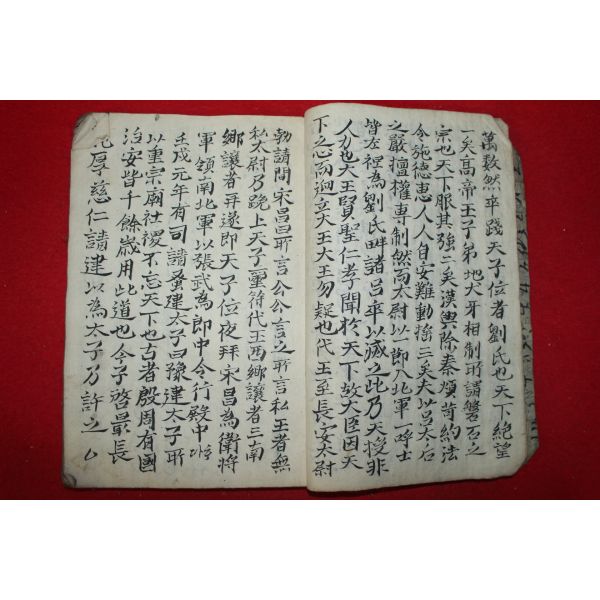 萬數然卒踐天子位者劉氏也天下絶望
一矣高帝王子弟地犬牙相制所謂磐石之
宗也天下服其强二矣漢興除秦煩苛約法
令施德惠人人自安難動搖三矣夫以呂太后
之嚴擅權專制然而太尉以一節入北軍一呼士
皆左袒為劉氏畔諸呂卒以滅之此乃天授非
人力也大王賢聖仁孝聞於天下故大臣因天
下之心而迎立大王大王勿疑也代王至長安太尉
勃請間宋昌曰所言公公言之所言私王者無
私太尉乃跪上天子璽符代王西鄉讓者三南
鄉讓者再遂即天子位夜拜宋昌為衛將
軍領南北軍以張武為郎中令行殿中
壬戌元年有司請蚤建太子曰豫建太子所
以重宗廟社稷不忘天下也古者殷周有國
治安皆千餘歲用此道也今子啓最長
厚慈仁請建以為太子乃許之